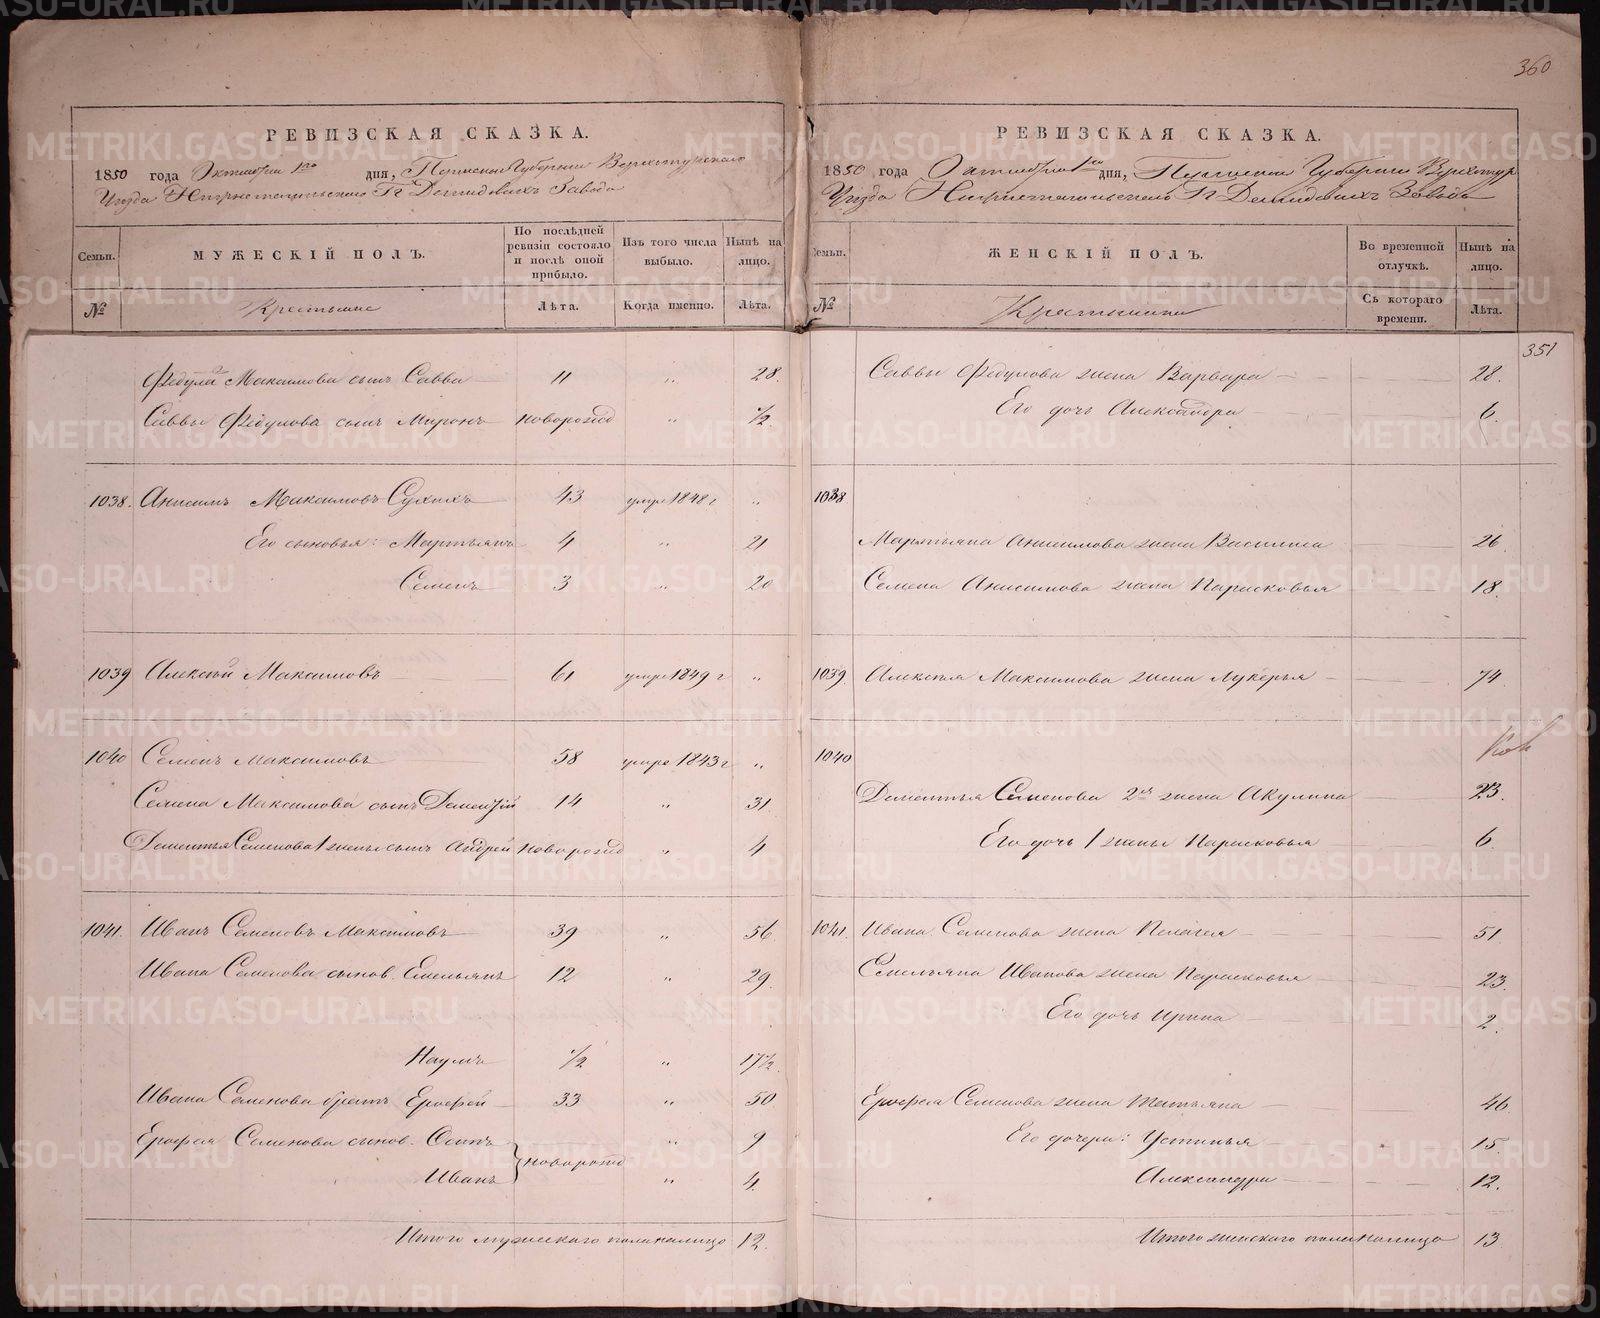 360
РЕВИЗСКАЯ СКАЗКА.
1850 года Октября 1го дня, Пермской Губернии Верхотурского
Уезда Нижнетагильского Гг Демидовыхъ Завода
Семьи. МУЖЕСКІЙ ПОЛЪ. По послѣдней ревизіи состояло и послѣ оной прибыло. Изъ того числа выбыло. Нынѣ на лицо.
№ Крестьяне Лѣта. Когда именно. Лѣта.
Федула Максимова сынъ Савва 11 " 28.
Саввы Федулова сынъ Миронъ новорожд " 1/2
1038. Анисимъ Максимовъ Сухихъ 43 умре 1848 г "
Его сыновья: Мартьянъ 4 " 21
Семенъ 3 " 20
1039 Алексѣй Максимовъ 61 умре 1849 г "
1040 Семенъ Максимовъ 58 умре 1843 г "
Семена Максимова сынъ Дементій 14 " 31
Дементья Семенова 1 жены сынъ Андрей новорожд " 4
1041. Иванъ Семеновъ Максимовъ 39 " 56
Ивана Семенова сынов. Емельянъ 12 " 29.
Наумъ 1/2 " 17 1/2
Ивана Семенова братъ Ерофей 33 " 50
Ерофея Семенова сынов. Осипъ " 9
новорожд
Иванъ " 4.
Итого мужескаго пола налицо 12.
РЕВИЗСКАЯ СКАЗКА.
1850 года Октября 1го дня, Пермской Губернии Верхотур
Уезда Нижнетагильского Гг Демидовыхъ Завода
Семьи. ЖЕНСКІЙ ПОЛЪ. Во временной отлучкѣ. Нынѣ на лицо.
№ Крестьянки Съ котораго времени. Лѣта.
351
Саввы Федулова жена Варвара 28.
Его дочь Александра 6.
1038
Мартьяна Анисимова жена Василиса 26.
Семена Анисимова жена Парасковья 18.
1039. Алексѣя Максимова жена Лукерья 74
1040
Дементья Семенова 2я жена Акулина 23.
Его дочь 1 жены Парасковья 6.
1041. Ивана Семенова жена Пелагея 51.
Емельяна Иванова жена Парасковья 23.
Его дочь Ирина 2.
Ерофея Семенова жена Татьяна 46.
Его дочери: Устинья 15.
Александра 12.
Итого женскаго пола налицо 13
METRIKI.GASO-URAL.RU